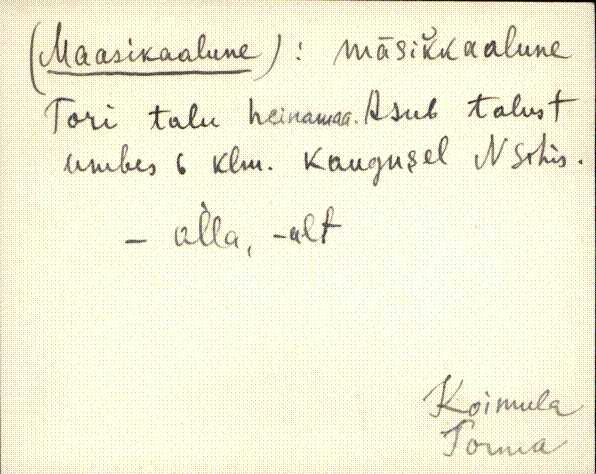 (Maasikaalune): māsik̆kaalune
Tori talu heinamaa. Asub talust
umbes 6 klm. kaugusel N sihis.
– al̀la, -alt
Koimula
Torma